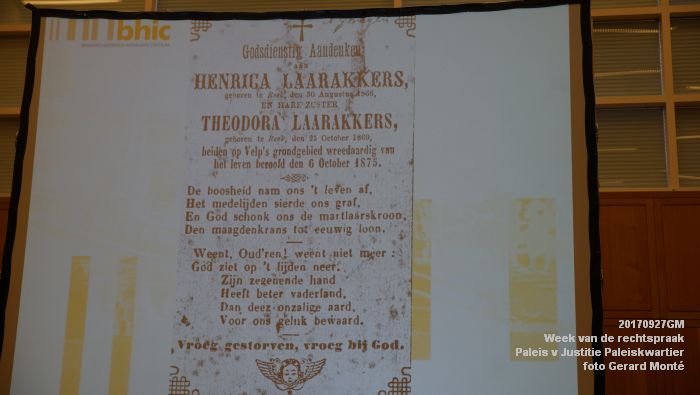 bhic
Godsdienstig Aandenken
AAN
HENRICA LAARAKKERS,
geboren te Reek, den 30 Augustus 1866,
EN HARE ZUSTER
THEODORA LAARAKKERS,
geboren te Reek, den 25 October 1869,
beiden op Velp's grondgebied wreedaardig van
het leven beroofd den 6 October 1875.
De boosheid nam ons 't leven af,
Het medelijden sierde ons graf,
En God schonk ons de martlaarskroon,
Den maagdenkrans tot eeuwig loon.
Weent, Oud'ren! weent niet meer:
God ziet op 't lijden neer.
Zijn zegenende hand
Heeft beter vaderland,
Dan deez onzalige aard,
Voor ons geluk bewaard.
Vroeg gestorven, vroeg bij God.
20170927GM
Week van de rechtspraak
Paleis v Justitie Paleiskwartier
foto Gerard Monté